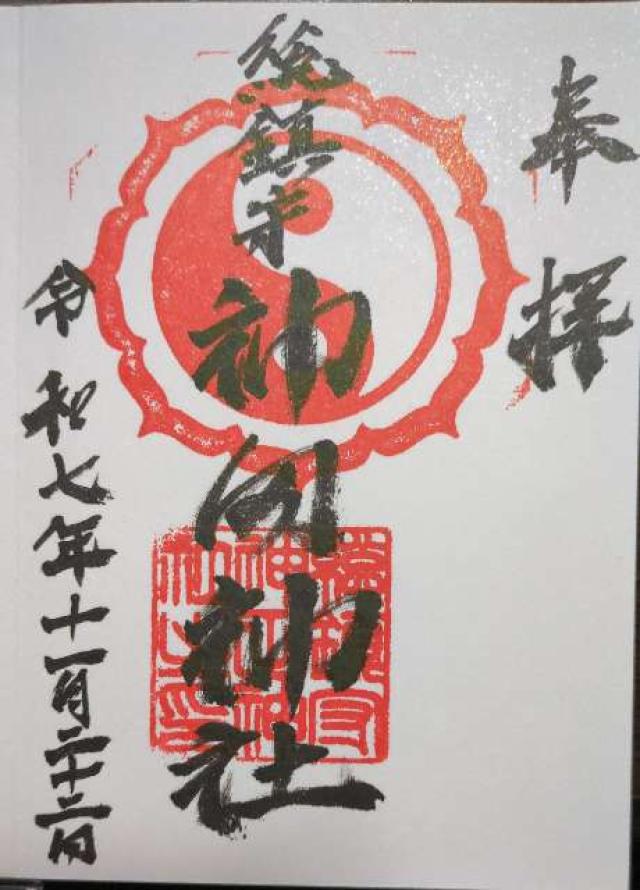 奉拝
総鎮守
神明神社
令和七年十一月二十三日